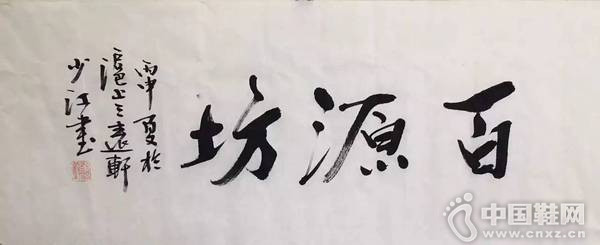 百源坊
丙申夏於
滬上三遠軒
少江書
中国鞋网
www.cnxz.cn